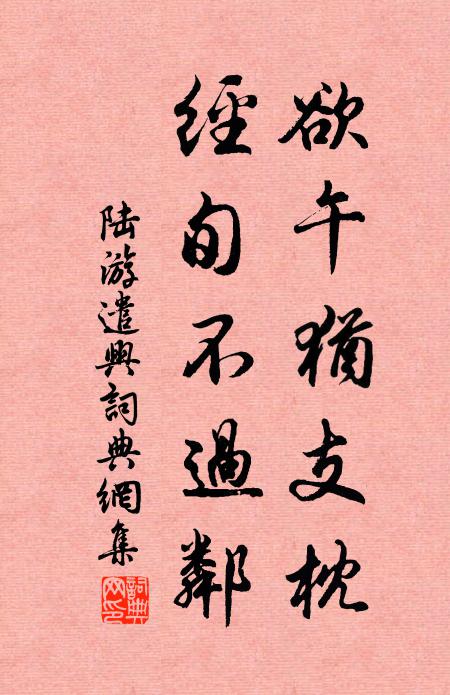 欲午猶支枕
經旬不過鄰
陸游遣興詞典網集
詞典
網印